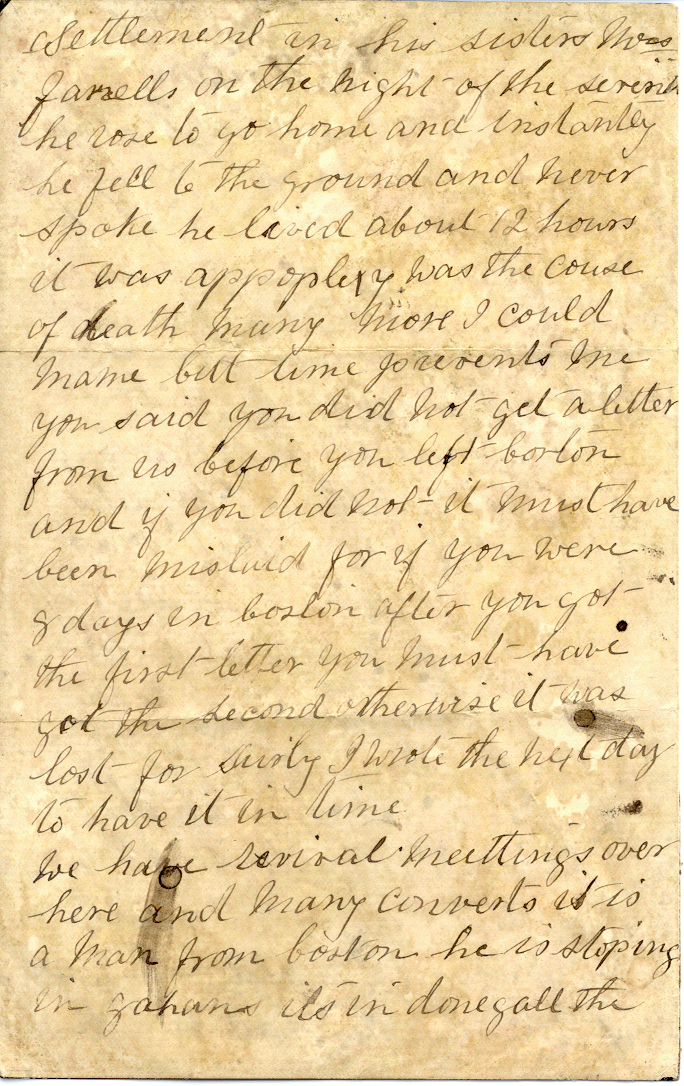 Settlement in his sisters Mrs
farrells on the night of the seventh
he rose to go home and instantly
he fell to the ground and never
spoke he lived about 12 hours
it was appoplexy was the couse
of death many more I could
name but time prevents me
you said you did not get a letter
from us before you left boston
and if you did not it must have
been mislaid for if you were
8 days in boston after you got
the first letter you must have
got the second otherwise it was
lost for surly I wrote the next day
to have it in time
we have revival meettings over
here and many converts it is
a man from boston he is stoping
in gahans its in donegall the